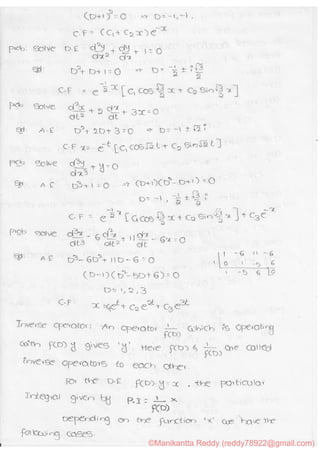 (D+1)²=0 ⇒ D=-1,-1.
C.F = (C₁+C₂x)e⁻ˣ
Prob: Solve D.E d²y/dx² + dy/dx + 1 = 0
Sol: D²+D+1=0 ⇒ D = -1/2 ± √3/2 i
C.F = e^(-1/2 x) [C₁ cos √3/2 x + C₂ Sin √3/2 x]
Prob: Solve d²x/dt² + 2 dx/dt + 3x=0
Sol A.E D²+2D+3=0 ⇒ D=-1±√2 i
C.F x= e⁻ᵗ [C₁ cos√2t + C₂ Sin√2t]
Prob: Solve d³y/dx³ + y=0
Sol: A.E D³+1=0 ⇒ (D+1)(D²-D+1)=0
D=-1, 1/2 ± √3/2 i
C.F = e^(1/2 x) [C₁ cos √3/2 x + C₂ Sin √3/2 x] + C₃e⁻ˣ
Prob: Solve d³x/dt³ - 6 d²x/dt² + 11 dx/dt - 6x=0
Sol: A.E D³-6D²+11D-6=0
1 | 1 -6 11 -6
0 1 -5 6
1 -5 6 |0
(D-1)(D²-5D+6)=0
D=1,2,3
C.F x= C₁eᵗ + C₂e²ᵗ + C₃e³ᵗ
Inverse operator: An operator 1/f(D) which is operating
with f(D)y gives 'y'. Here f(D) & 1/f(D) are called
inverse operators to each other
For the D.E f(D).y=x, the particular
Integral given by P.I = 1/f(D) x
Depending on the function 'x' we have the
following cases.
©Manikantta Reddy (reddy78922@gmail.com)